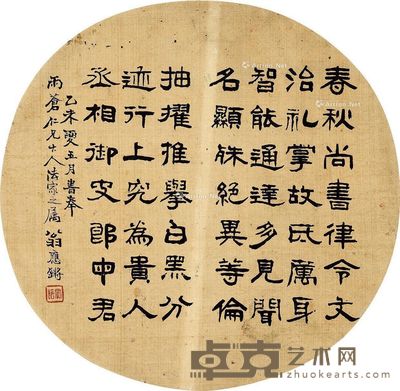 春秋尚書律令文
治礼掌故氏厲身
智能通達多見聞
名顯殊絕異等倫
抽擢推舉白黑分
迹行上究為貴人
丞相御史郎中君
乙未夏五月書奉
雨蒼仁兄大人法家之屬
翁應鏘
卓克艺术网
www.zhuokearts.com